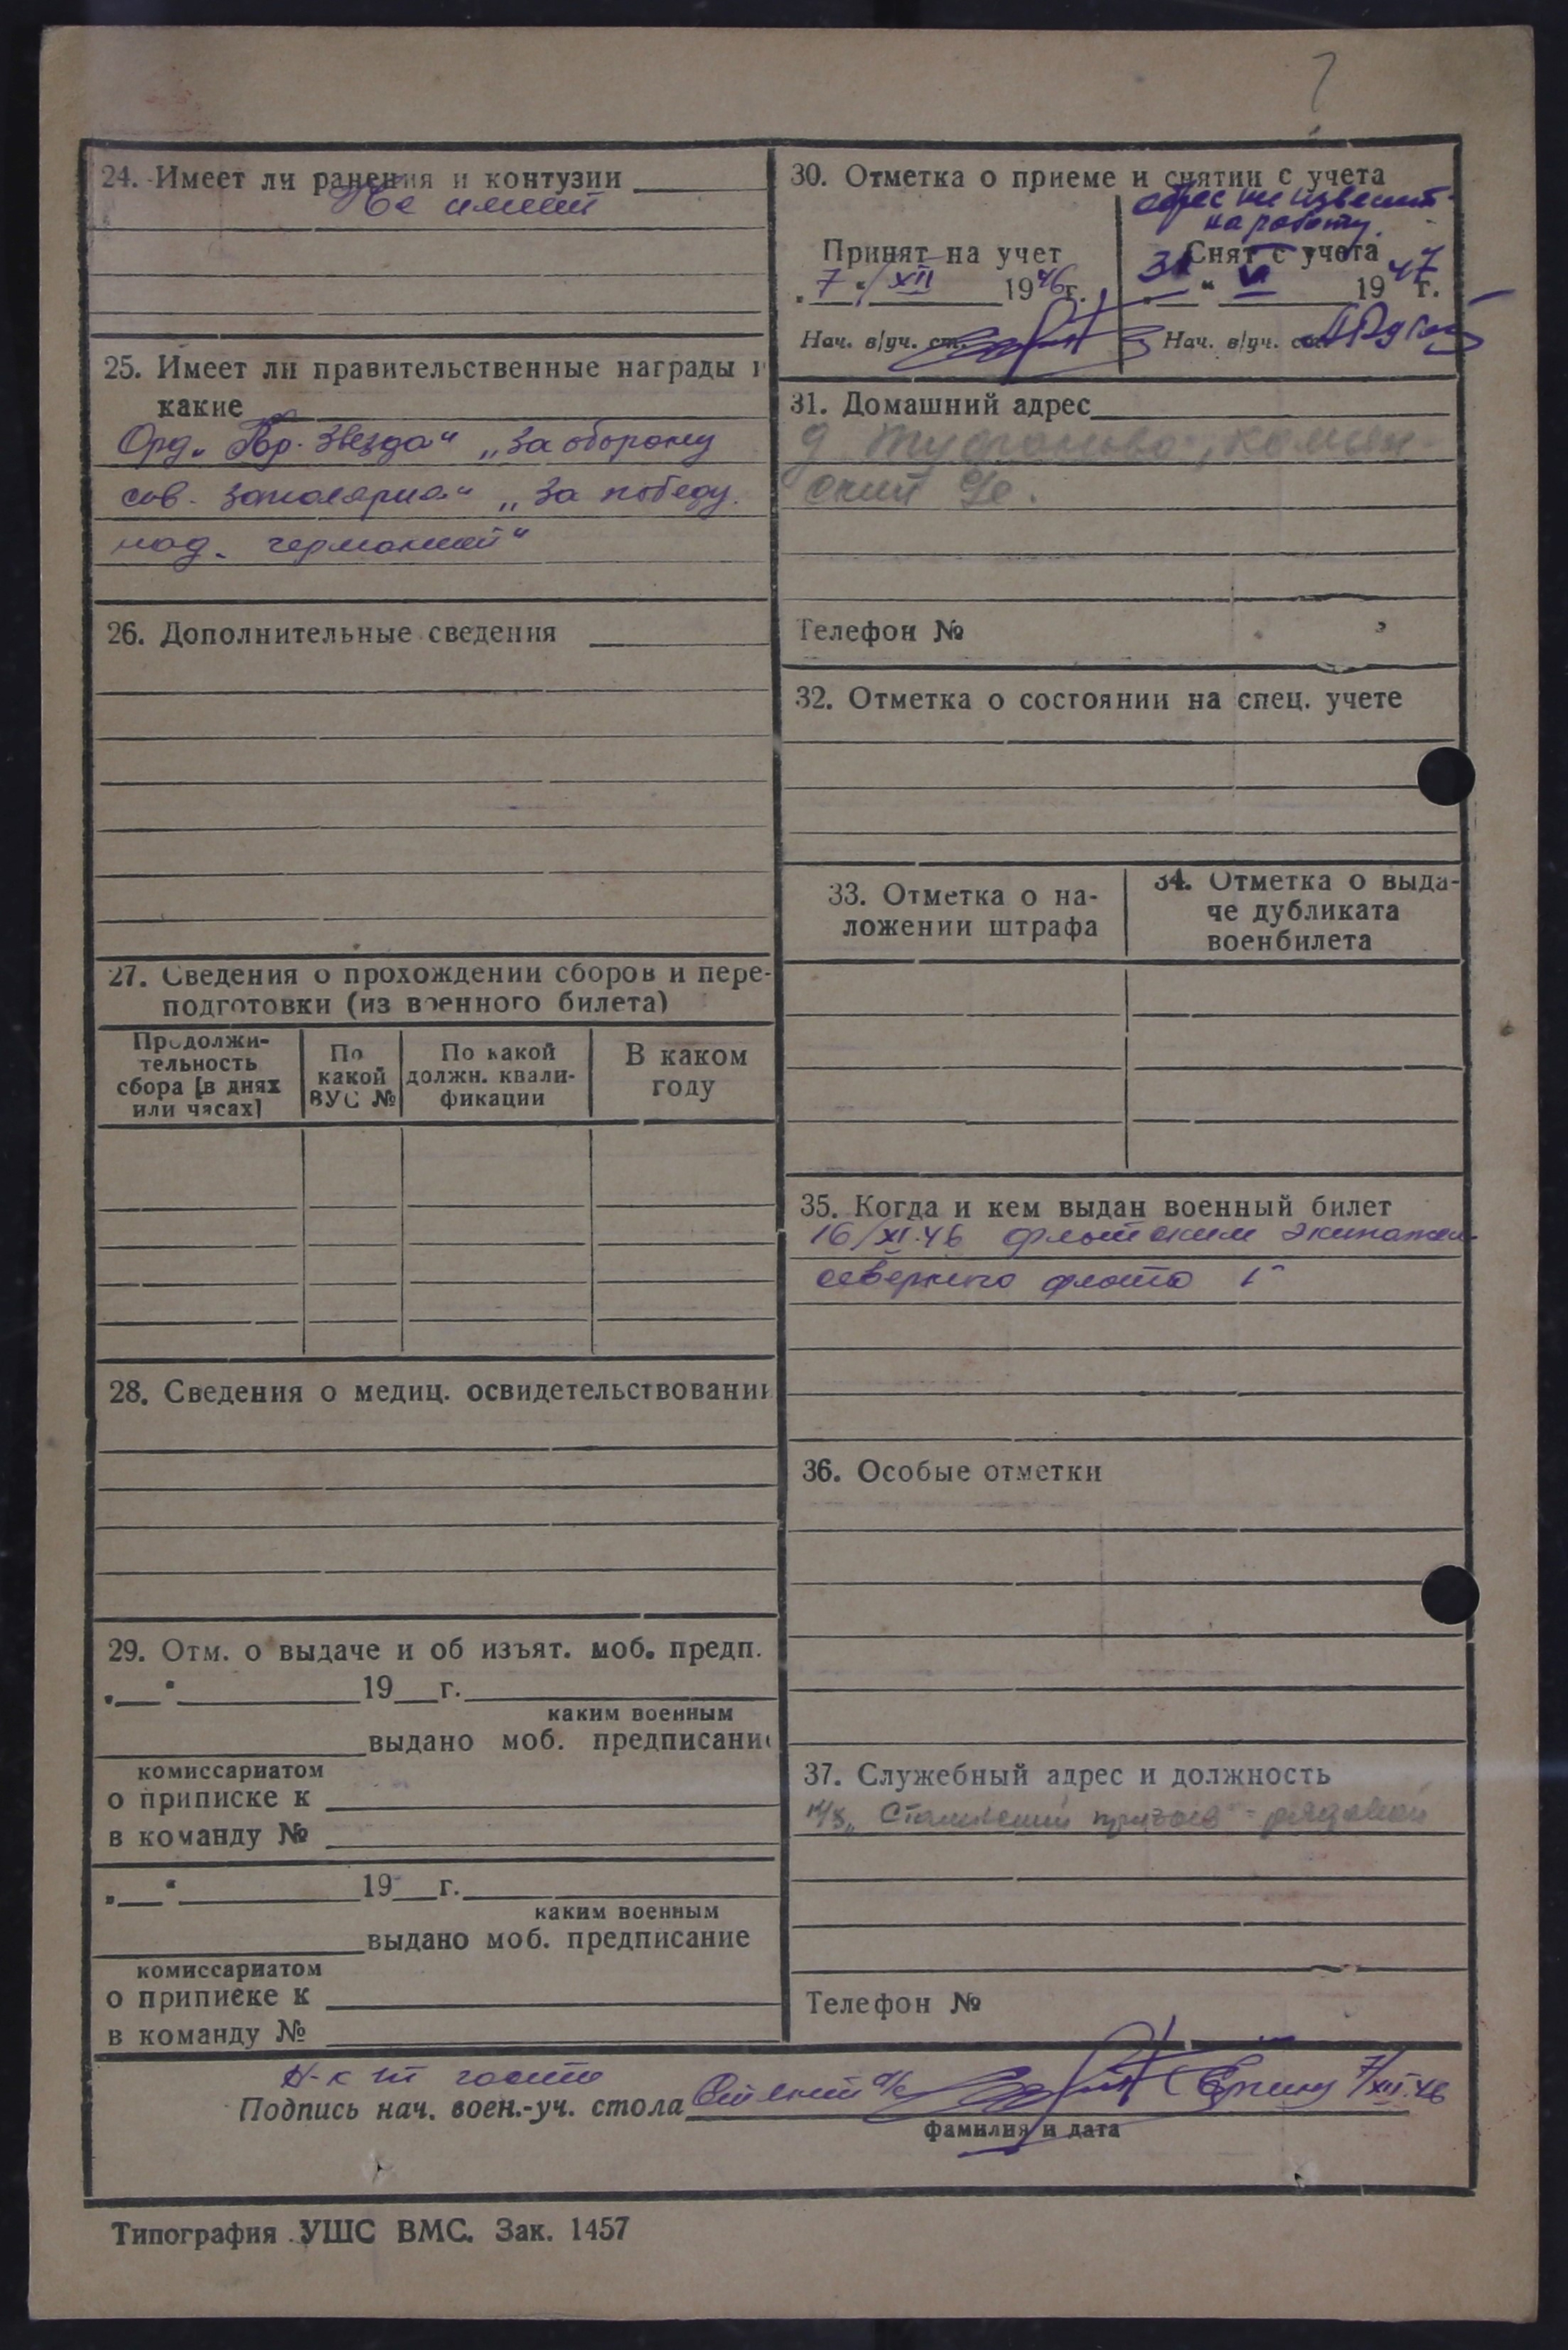 ?
24. Имеет ли ранения и контузии
Не имеет
25. Имеет ли правительственные награды и
какие
Орд. "Кр. Звезда" "За оборону
сов. Заполярия" "За победу
над. германией"
26. Дополнительные сведения
27. Сведения о прохождении сборов и пере-
подготовки (из военного билета)
Продолжи-
тельность
сбора [в днях
или часах]
По
какой
ВУС №
По какой
должн. квали-
фикации
В каком
году
28. Сведения о медиц. освидетельствовании
29. Отм. о выдаче и об изъят. моб. предп.
" " 19 г.
каким военным
выдано моб. предписание
комиссариатом
о приписке к
в команду №
" " 19 г.
каким военным
выдано моб. предписание
комиссариатом
о приписке к
в команду №
30. Отметка о приеме и снятии с учета
адрес не известн.
на работу.
Принят на учет
"7" XII 1946г.
Нач. в/уч. ст.
Снят с учета
31 " VI 1947 г.
Нач. в/уч. ст.
31. Домашний адрес
д
Телефон №
32. Отметка о состоянии на спец. учете
33. Отметка о на-
ложении штрафа
34. Отметка о выда-
че дубликата
военбилета
35. Когда и кем выдан военный билет
16/XI.46 флотским экипажем
северного флота
36. Особые отметки
37. Служебный адрес и должность
"Сталинский призыв" - рядовой
Телефон №
Н-к
Подпись нач. воен.-уч. стола 7/XII.46
фамилия и дата
Типография УШС ВМС. Зак. 1457